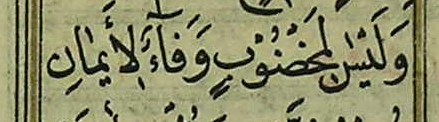 وَلَيْسَ لِمَخْضُوْبٍ وَفَآءُ لِأَيْمَانِ